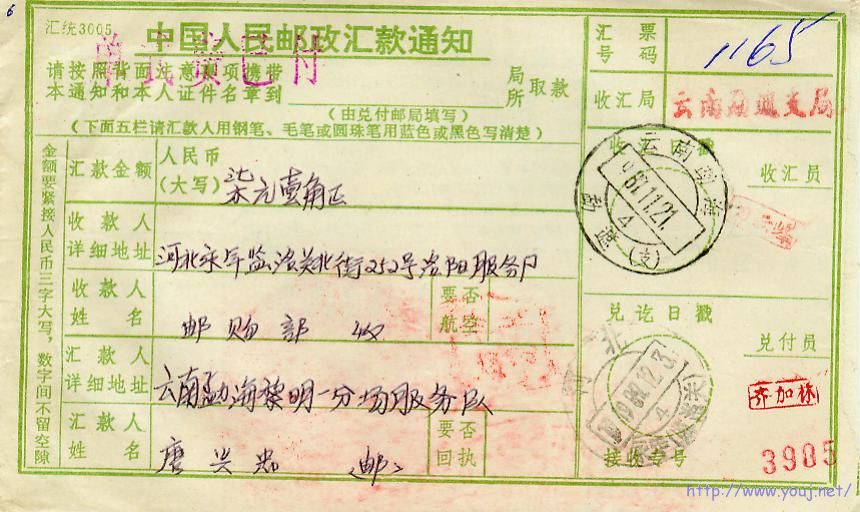 6
汇统3005
中国人民邮政汇款通知
请按照背面注意事项携带
本通知和本人证件名章到
局
所
取款
(由兑付邮局填写)
(下面五栏请汇款人用钢笔、毛笔或圆珠笔用蓝色或黑色写清楚)
金额要紧接人民币三字大写，数字间不留空隙
汇款金额
人民币
(大写)
柒元壹角正
收款人
详细地址
河北永年临洺关北街252号洺阳服务
收款人
姓名
邮购部 收
要否
航空
汇款人
详细地址
云南勐海黎明一分场服务队
汇款人
姓名
唐兴忠
要否
回执
汇票
号码
1165
收汇局
云南 支局
收汇
收汇员
云南
1982.11.21.
4
兑讫日戳
兑付员
河北
1982.12.3
4
齐加林
接收专号
3905
http://www.youj.net/